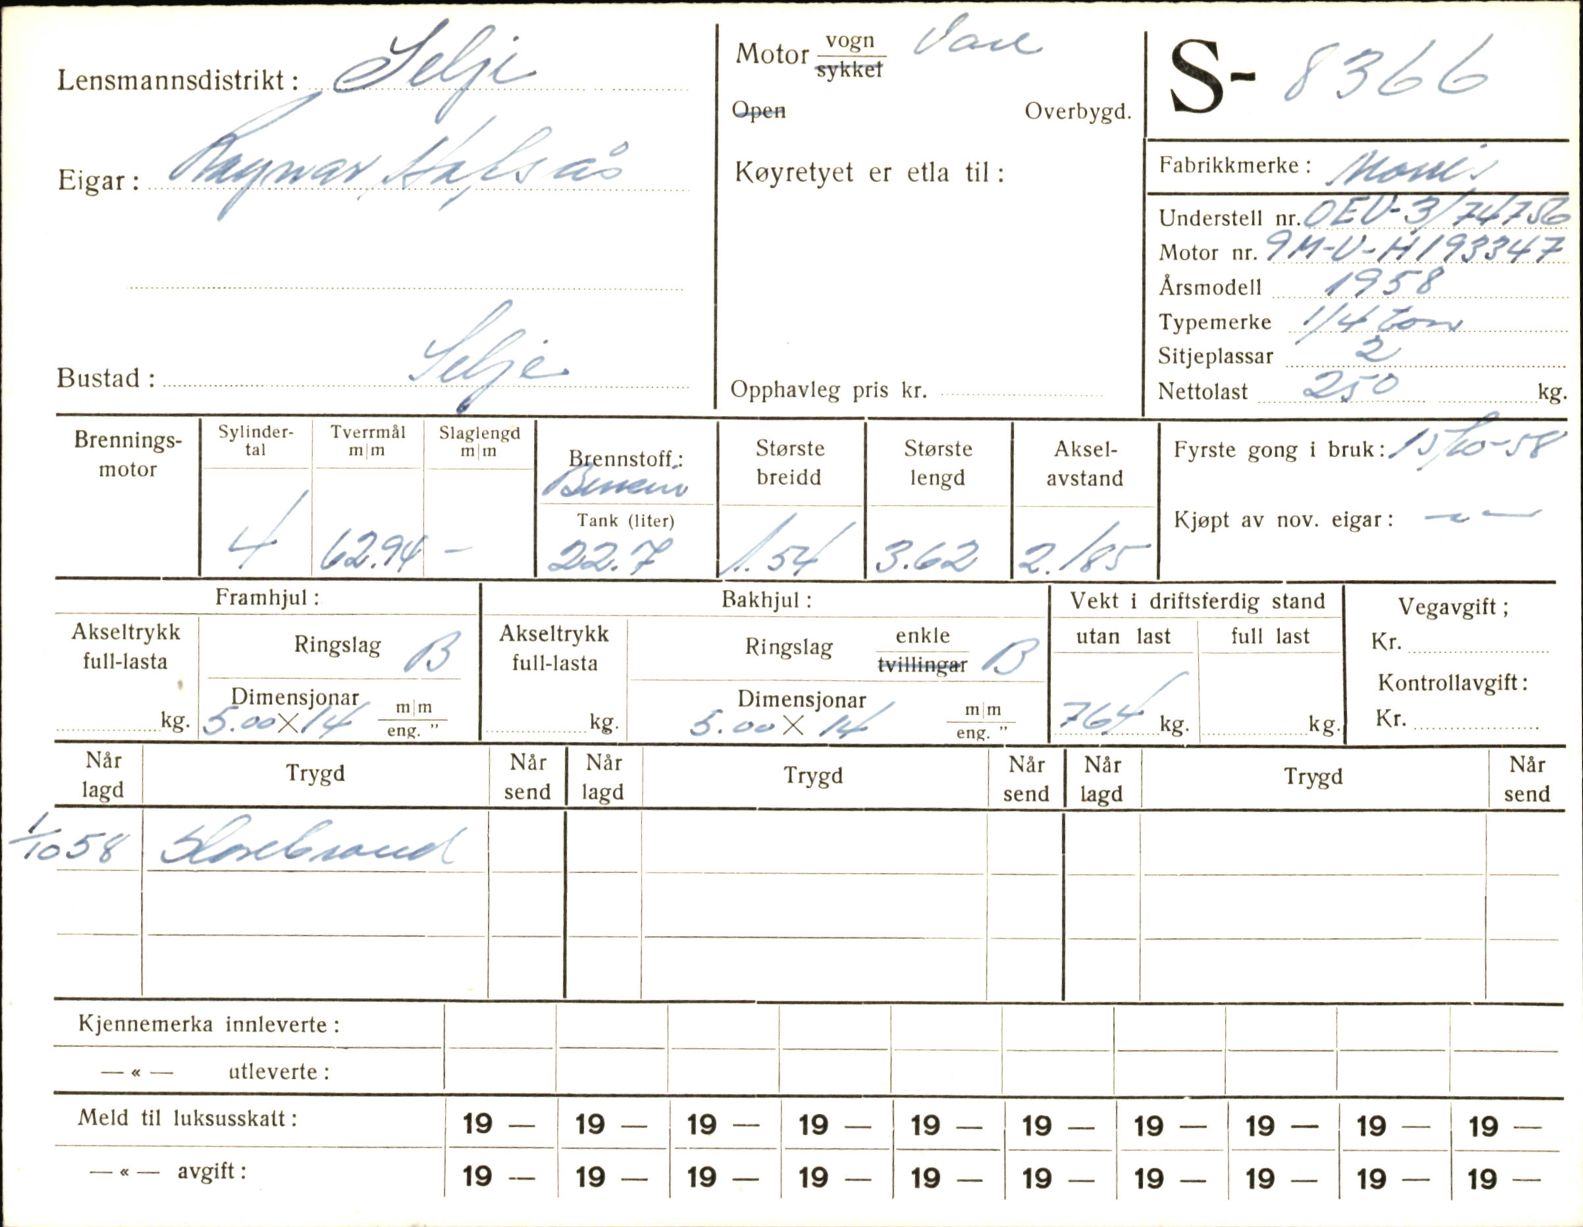 Lensmannsdistrikt: Selje
Eigar: Ragnar Hafsås
Bustad: Selje
Motor vogn sykkel Vare
Open Overbygd.
Køyretyet er etla til:
Opphavleg pris kr.
S- 8366
Fabrikkmerke: Morris
Understell nr. OEV-3/74756
Motor nr. 9M-U-H193347
Årsmodell 1958
Typemerke 1/4 ton
Sitjeplassar 2
Nettolast 250 kg.
Brennings-motor
Sylinder-tal 4
Tverrmål m|m 62.94
Slaglengd m|m —
Brennstoff: Bensin
Tank (liter) 22.7
Største breidd 1.54
Største lengd 3.62
Aksel-avstand 2.185
Fyrste gong i bruk: 15/10-58
Kjøpt av nov. eigar: — " —
Framhjul:
Akseltrykk full-lasta kg.
Ringslag B
Dimensjonar 5.00 X 14 m|m eng. "
Bakhjul:
Akseltrykk full-lasta kg.
Ringslag enkle tvillingar B
Dimensjonar 5.00 X 14 m|m eng. "
Vekt i driftsferdig stand
utan last 764 kg.
full last kg.
Vegavgift;
Kr.
Kontrollavgift:
Kr.
Når lagd Trygd Når send Når lagd Trygd Når send Når lagd Trygd Når send
1/10 58 Storebrand
Kjennemerka innleverte:
— « — utleverte:
Meld til luksusskatt: 19 — 19 — 19 — 19 — 19 — 19 — 19 — 19 — 19 — 19 —
— « — avgift: 19 — 19 — 19 — 19 — 19 — 19 — 19 — 19 — 19 — 19 —